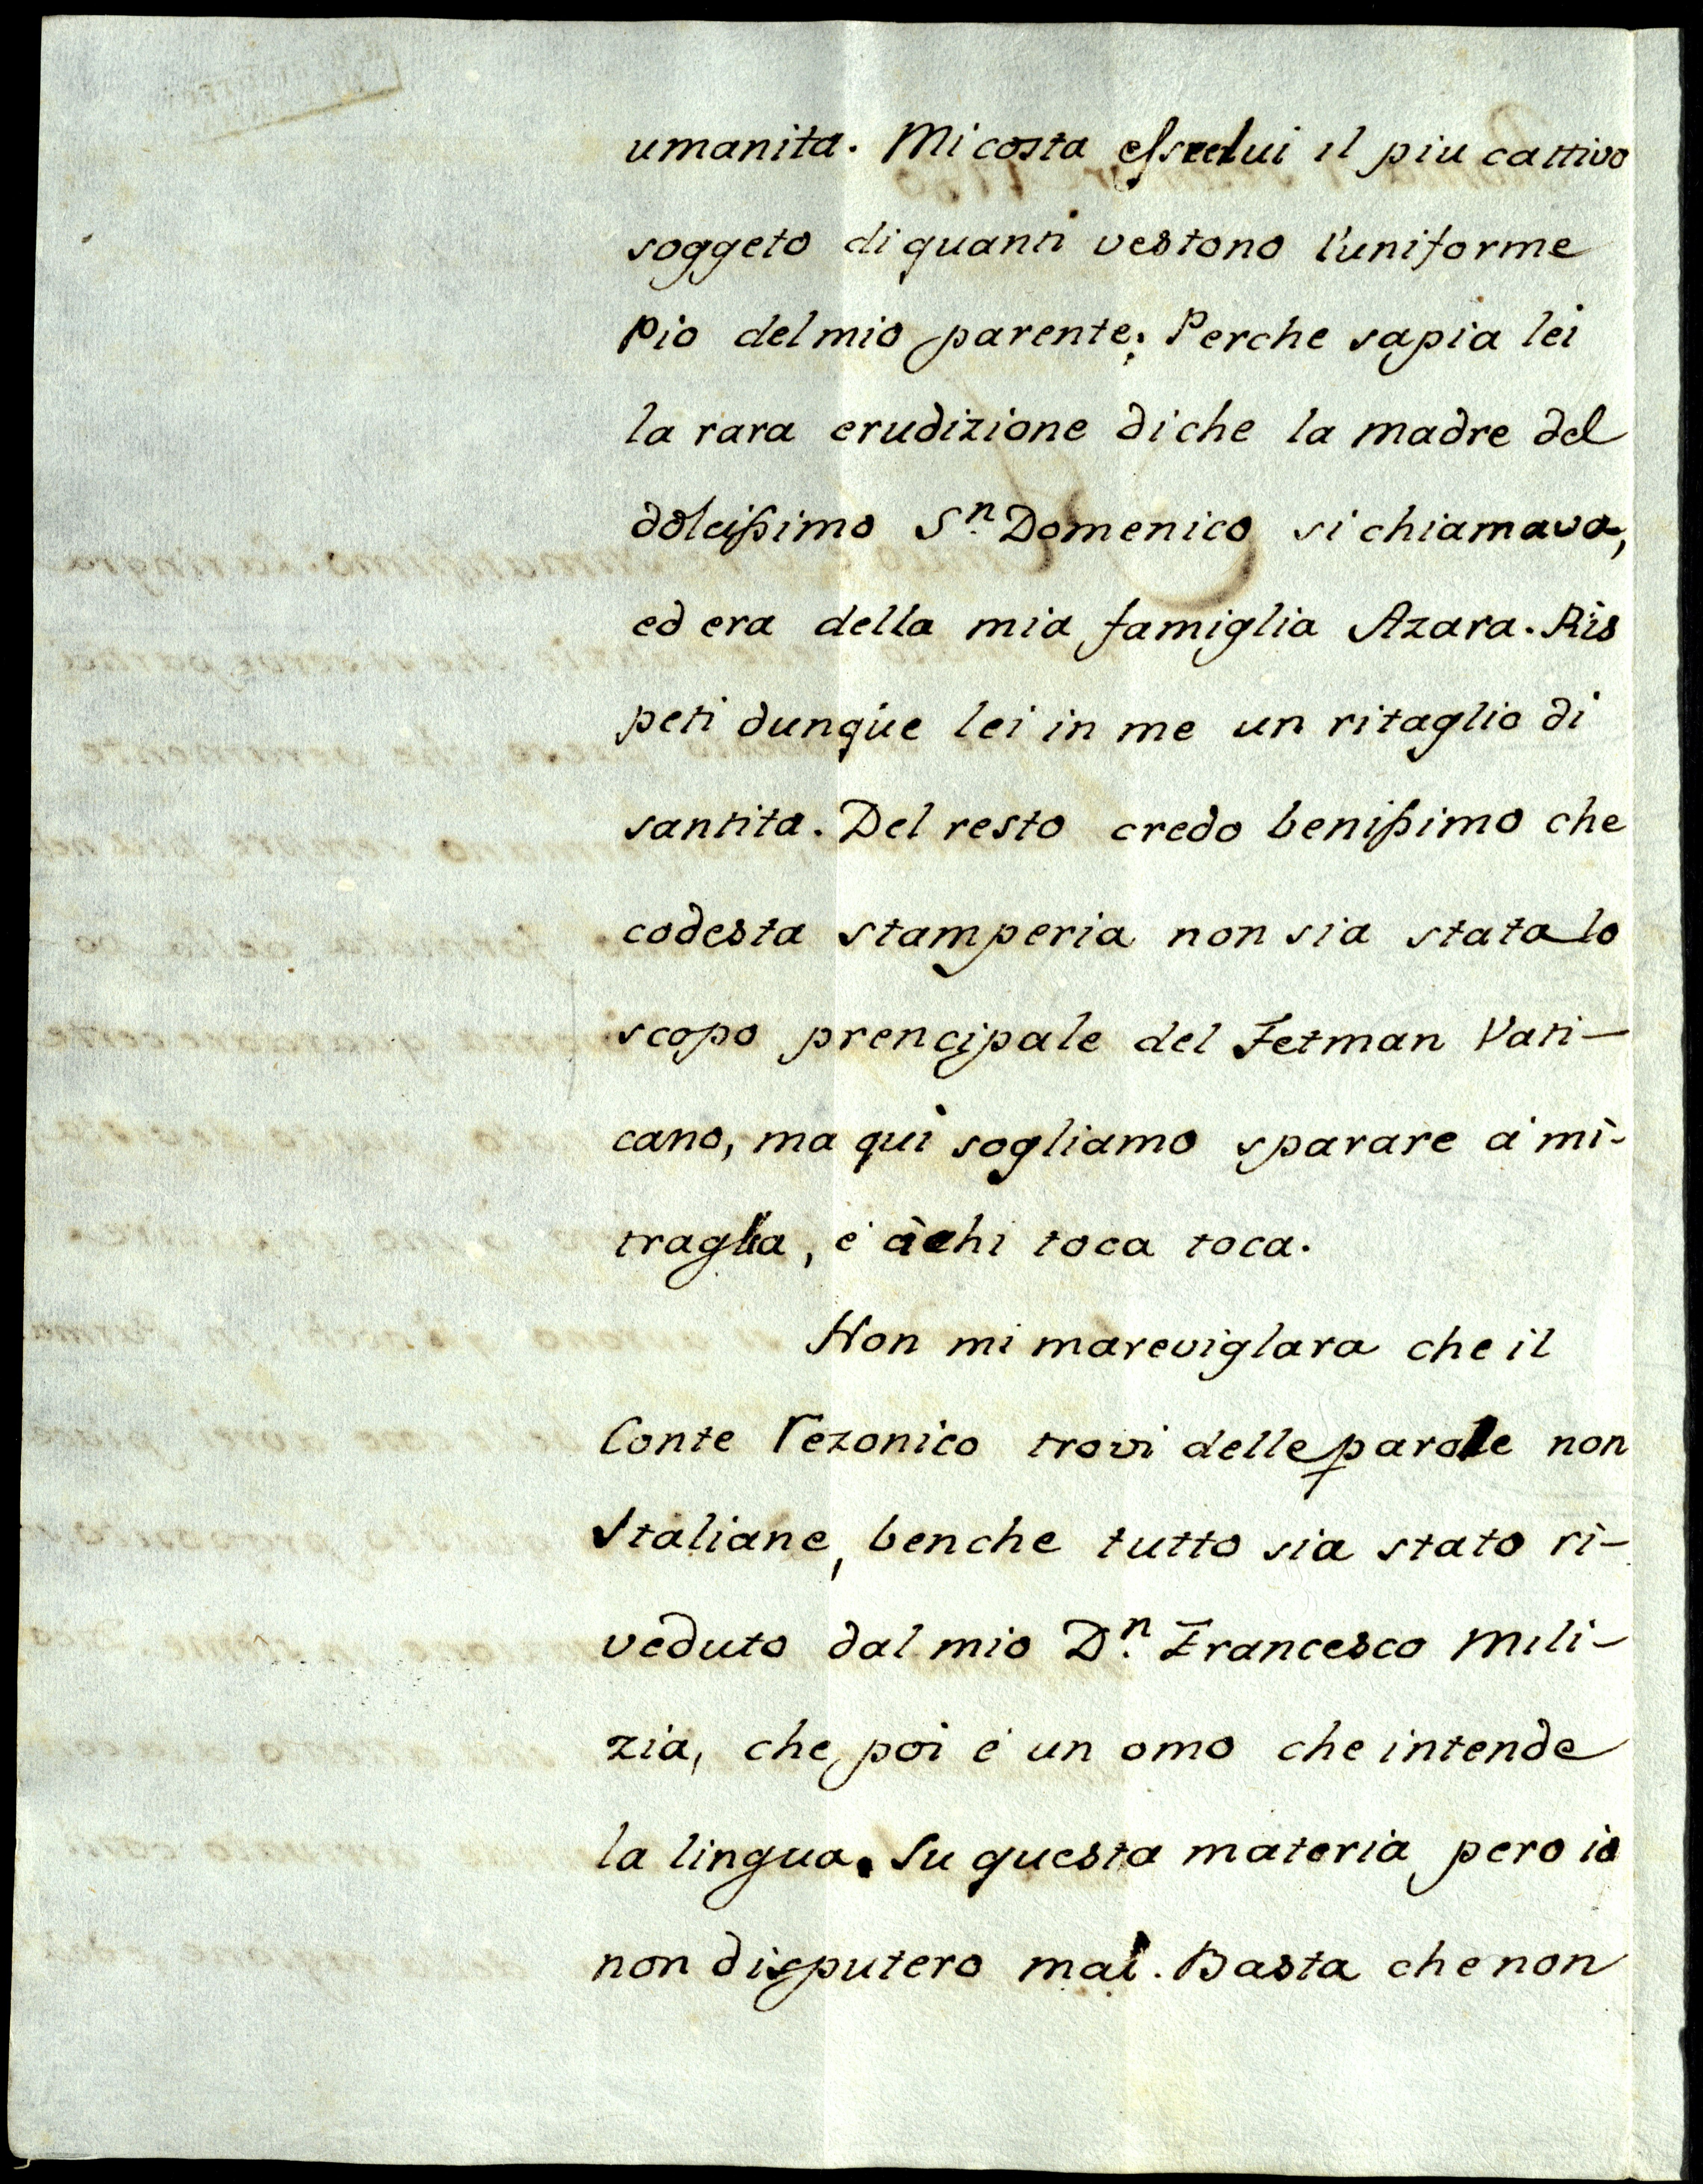 umanita. Mi costa essre lui il piu cattivo
soggeto di quanti vestono l'uniforme
Pio del mio parente; Perche sapia lei
la rara erudizione di che la madre del
dolcissimo Sn. Domenico si chiamava,
ed era della mia famiglia Azara. Ris
peti dunque lei in me un ritaglio di
santita. Del resto credo benissimo che
codesta stamperia non sia stata lo
scopo prencipale del Fetman Vati-
cano, ma qui sogliamo sparare a mi-
traglia, é à chi toca toca.
Non mi mareviglara che il
Conte Rezonico trovi delle parole non
Italiane, benche tutto sia stato ri-
veduto dal mio Dn. Francesco Mili-
zia, che poi é un omo che intende
la lingua. Su questa materia pero io
non disputero mai. Basta che non